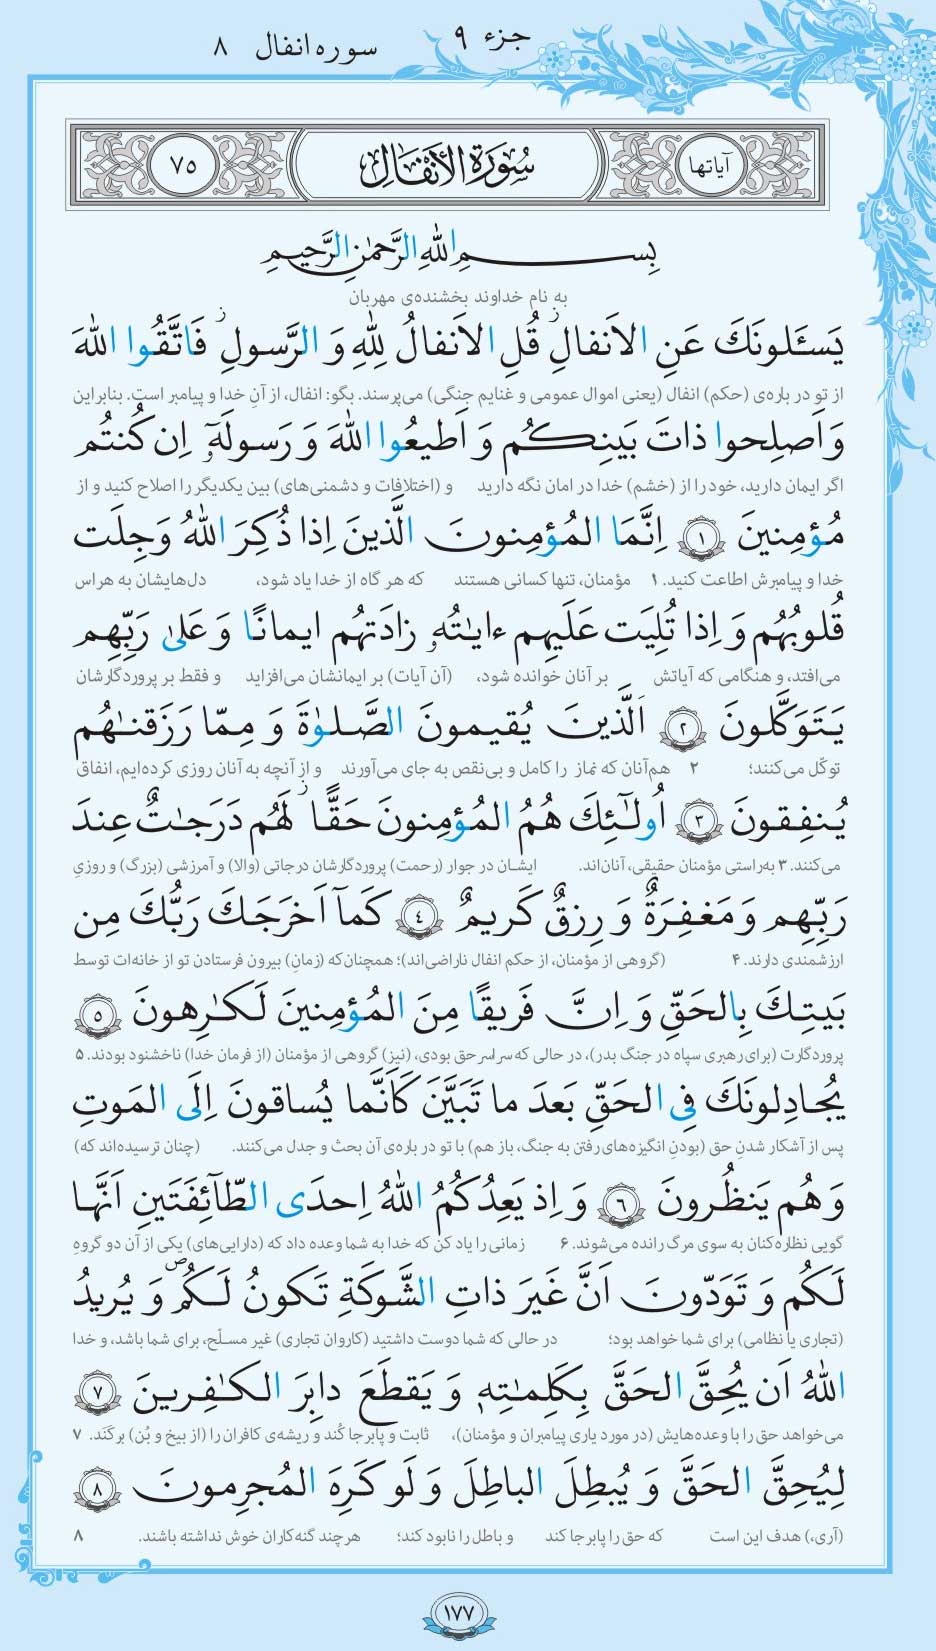 جزء ۹
سوره انفال ۸
آیاتها سُورَةُ الأَنْفَالِ ۷۵
بِسمِ اللهِ الرَّحمٰنِ الرَّحیمِ
به نام خداوند بخشنده‌ی مهربان
یَسـَٔلونَکَ عَنِ الاَنفالِ ۖ قُلِ الاَنفالُ لِلّٰهِ وَ الرَّسولِ ۖ فَاتَّقُوا اللهَ
از تو در باره‌ی (حکم) انفال (یعنی اموال عمومی و غنایم جنگی) می‌پرسند. بگو: انفال، از آنِ خدا و پیامبر است. بنابراین
وَ اَصلِحوا ذاتَ بَینِکُم وَ اَطیعُوا اللهَ وَ رَسولَهٗٓ اِن کُنتُم
اگر ایمان دارید، خود را از (خشم) خدا در امان نگه دارید و (اختلافات و دشمنی‌های) بین یکدیگر را اصلاح کنید و از
مُؤمِنینَ ﴿۱﴾ اِنَّمَا المُؤمِنونَ الَّذینَ اِذا ذُکِرَ اللهُ وَجِلَت
خدا و پیامبرش اطاعت کنید. ۱ مؤمنان، تنها کسانی هستند که هر گاه از خدا یاد شود، دل‌هایشان به هراس
قُلوبُهُم وَ اِذا تُلِیَت عَلَیهِم ءایٰتُهٗ زادَتهُم ایمانًا وَ عَلیٰ رَبِّهِم
می‌افتد، و هنگامی که آیاتش بر آنان خوانده شود، (آن آیات) بر ایمانشان می‌افزاید و فقط بر پروردگارشان
یَتَوَکَّلونَ ﴿۲﴾ اَلَّذینَ یُقیمونَ الصَّلوٰةَ وَ مِمّا رَزَقنٰهُم
توکّل می‌کنند؛ ۲ هم‌آنان که نماز را کامل و بی‌نقص به جای می‌آورند و از آنچه به آنان روزی کرده‌ایم، انفاق
یُنفِقونَ ﴿۳﴾ اُولٰٓئِکَ هُمُ المُؤمِنونَ حَقًّا ۚ لَهُم دَرَجٰتٌ عِندَ
می‌کنند. ۳ به‌راستی مؤمنان حقیقی، آنان‌اند. ایشان در جوار (رحمت) پروردگارشان درجاتی (والا) و آمرزشی (بزرگ) و روزیِ
رَبِّهِم وَ مَغفِرَةٌ وَ رِزقٌ کَریمٌ ﴿٤﴾ کَمآ اَخرَجَکَ رَبُّکَ مِن
ارزشمندی دارند. ۴ (گروهی از مؤمنان، از حکم انفال ناراضی‌اند)؛ همچنان‌که (زمانِ) بیرون فرستادن تو از خانه‌ات توسط
بَیتِکَ بِالحَقِّ وَ اِنَّ فَریقًا مِنَ المُؤمِنینَ لَکٰرِهونَ ﴿۵﴾
پروردگارت (برای رهبری سپاه در جنگ بدر)، در حالی که سراسر حق بودی، (نیز) گروهی از مؤمنان (از فرمان خدا) ناخشنود بودند. ۵
یُجادِلونَکَ فِی الحَقِّ بَعدَ ما تَبَیَّنَ کَاَنَّما یُساقونَ اِلَی المَوتِ
پس از آشکار شدنِ حق (بودنِ انگیزه‌های رفتن به جنگ، باز هم) با تو در باره‌ی آن بحث و جدل می‌کنند. (چنان ترسیده‌اند که)
وَ هُم یَنظُرونَ ﴿٦﴾ وَ اِذ یَعِدُکُمُ اللهُ اِحدَی الطّآئِفَتَینِ اَنَّها
گویی نظاره‌کنان به سوی مرگ رانده می‌شوند. ۶ زمانی را یاد کن که خدا به شما وعده داد که (دارایی‌های) یکی از آن دو گروهِ
لَکُم وَ تَوَدّونَ اَنَّ غَیرَ ذاتِ الشَّوکَةِ تَکونُ لَکُم وَ یُریدُ
(تجاری یا نظامی) برای شما خواهد بود؛ در حالی که شما دوست داشتید (کاروان تجاری) غیر مسلّح، برای شما باشد، و خدا
اللهُ اَن یُحِقَّ الحَقَّ بِکَلِمٰتِهٖ وَ یَقطَعَ دابِرَ الکٰفِرینَ ﴿۷﴾
می‌خواهد حق را با وعده‌هایش (در مورد یاری پیامبران و مؤمنان)، ثابت و پابرجا کُند و ریشه‌ی کافران را (از بیخ و بُن) برکَنَد. ۷
لِیُحِقَّ الحَقَّ وَ یُبطِلَ الباطِلَ وَ لَو کَرِهَ المُجرِمونَ ﴿۸﴾
(آری،) هدف این است که حق را پابرجا کند و باطل را نابود کند؛ هرچند گنه‌کاران خوش نداشته باشند. ۸
۱۷۷